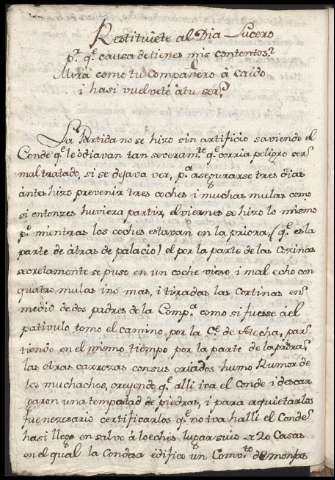 Restituiete al Dia Lucero
p.r q.e causa detienes mis contentos?
Mira como tu Compañero á caido
i hasi vuelvete á tu ser.
La Partida no se hizo sin artificio saviendo el
Conde q.e le odiavan tan severam.te q.e corria peligro ser
maltratado, si se dejava ver, p.a asegurarse tres dias
ántes hizo prevenir tres coches i muchas mulas como
si entonzes huviera partir, el viernes se hizo lo mismo
p.o mientras los coches estavan en la priora, (q.e es la
parte de átras de palacio) el por la parte de las Cozinas
secretamente se puso en un coche viejo i mal echo con
quatro mulas ino mas, i tiradas las Cortinas en
medio de dos padres de la Comp.a como si fuese ál
pativulo tomo el camino, por la C.e de Atocha, par-
tiendo en el mismo tiempo por la parte de la
las otras carrozas con sus criados humo Rumor de
los muchachos, creyendo q.e alli iva el Conde i descar
garon una tempestad de piedras, i para aquietarlos
fue necesario certificarlos q.e no iva halli el Conde
hasi llego en salvo á loeches, lugar suio de 20 Casas
en el qual la Condesa edifica un Conv.to de monjas